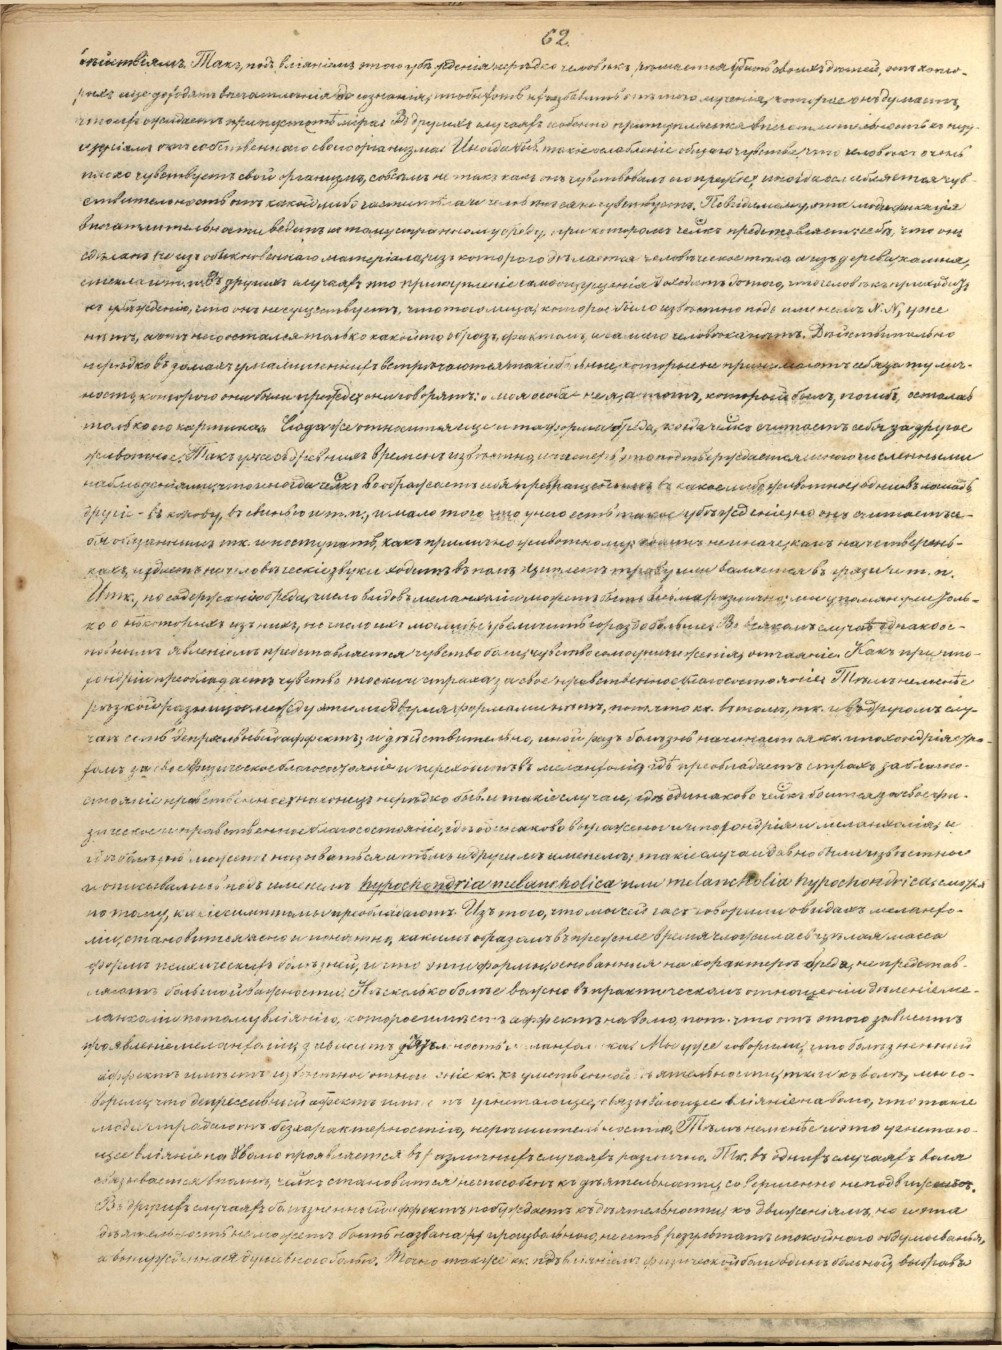 62.
Такъ, подъ вліяніемъ этого убѣжденія нерѣдко человѣкъ рѣшается убить своихъ дѣтей, отъ кото-
рыхъ еще доходятъ впечатлѣнія до сознанія, чтобы избавить отъ того мученія, которое онъ думаетъ,
что ихъ ожидаетъ въ пустотѣ міра. Въ другихъ случаяхъ особенно притупляется впечатлительность къ
ощущеніямъ отъ собственнаго своего организма. Иногда быв. такое ослабленіе общаго чувства, что человѣкъ очень
плохо чувствуетъ свой организмъ, совсѣмъ не такъ какъ онъ чувствовалъ его прежде, иногда ослабляется чув-
ствительность отъ какой либо части тѣла и человѣкъ ея не чувствуетъ. Повидимому эта модификація
впечатлительности ведетъ къ тому странному бреду, при которомъ челкъ представляетъ себѣ, что онъ
сдѣланъ не изъ обыкновеннаго матеріала, изъ котораго дѣлается человѣческое тѣло, а изъ дерева, камня,
стекла и т.п. Въ другихъ случаяхъ это притупленіе самоощущенія доходитъ до того, что человѣкъ приходитъ
къ убѣжденію, что онъ не существуетъ, что того лица, которое было извѣстно подъ именемъ N.N, уже
нѣтъ, а отъ него остался только какой то образъ, фантомъ, а самаго человѣка нѣтъ. Дѣйствительно
нерѣдко въ домахъ умалишенныхъ встрѣчаются такіе больные, которые не принимаютъ себя за ту лич-
ность, которою они были прежде; они говорятъ: „моя особа не я, а тотъ, который былъ, погибъ, осталась
только его картина. Сюда же относится еще и та форма бреда, когда челкъ считаетъ себя за другое
животное. Такъ уже съ древнихъ временъ извѣстно, и теперь это подтверждается многочисленными
наблюденіями, что иногда челкъ воображаетъ себя превращеннымъ въ какое либо животное, одинъ въ лошадь,
другіе - въ корову, въ свинью и т.п., и мало того что у него есть такое убѣжденіе, но онъ считаетъ се-
бя обязаннымъ тк. и поступать, какъ прилично животному: ходитъ не иначе, какъ на четверень-
кахъ, издаетъ не человѣческіе звуки, ходитъ въ поле щиплетъ траву или валяется въ грязи и т. п.
Итк., по содержанію бреда, число видовъ меланхоліи можетъ быть весьма различно; мы упомянули толь-
ко о нѣкоторыхъ изъ нихъ, но число ихъ можно увеличить гораздо больше. Во всякомъ случаѣ однако ос-
новнымъ явленіемъ представляется чувство боли, чувство самоуничиженія, отчаяніе. Какъ при ипо-
хондріи преобладаетъ чувство тоски и страха за свое нравственное благосостояніе. Тѣмъ не менѣе
рѣзкой разницы между этими двумя формами нѣтъ, потому что кк. въ томъ, тк. и въ другомъ слу-
чаѣ есть депрессивный аффектъ; и дѣйствительно, иной разъ болѣзнь начинается кк. ипохондрія стра-
хомъ за свое физическое благосостояніе и переходитъ въ меланхолію, гдѣ преобладаетъ страхъ за благосо-
стояніе нравственное; наконецъ нерѣдко быв. и такіе случаи, гдѣ одинаково челкъ боится за свое фи-
зическое и нравственное благосостояніе, гдѣ одинаково выражены и ипохондрія и меланхолія, и
гдѣ болѣзнь можетъ называться и тѣмъ и другимъ именемъ; такіе случаи давно были извѣстны
и описывались подъ именемъ hypochondria melancholica или melancholia hypochondrica, смотря
по тому, какіе симптомы преобладаютъ. Изъ того, что мы сейчасъ говорили о видахъ меланхо-
ліи, становится ясно и понятно, какимъ образомъ въ прежнее время сложилась цѣлая масса
формъ психическихъ болѣзней, и что эти формы, основанныя на характерѣ бреда, не представ-
ляютъ большой важности. Нѣсколько болѣе важно въ практическомъ отношеніи дѣленіе ме-
ланхоліи по тому вліянію, которое имѣетъ аффектъ на волю, пот. что отъ этого зависитъ
проявленіе меланхоліи, зависитъ Мы уже говорили, что болѣзненный
аффектъ имѣетъ извѣстное отношеніе кк. къ умственной дѣятельности, тк. и къ волѣ, мы го-
ворили, что депрессивный аффектъ имѣетъ угнетающее, связывающее вліяніе на волю, что такіе
люди страдаютъ безхарактерностію, нерѣшительностію. Тѣмъ не менѣе и это угнетаю-
щее вліяніе на волю проявляется въ различныхъ случаяхъ различно. Тк. въ однихъ случаяхъ воля
связывается вполнѣ, челкъ становится неспособенъ къ дѣятельности, совершенно неподвиженъ.
Въ другихъ случаяхъ болѣзненный аффектъ побуждаетъ къ дѣятельности, къ движеніямъ, но и эта
дѣятельность не можетъ быть названа произвольною, не есть результатъ спокойнаго обдумыванья,
а вынужденная душевною болью. Точно также кк. подъ вліяніемъ физической боли одинъ больной, выбравъ